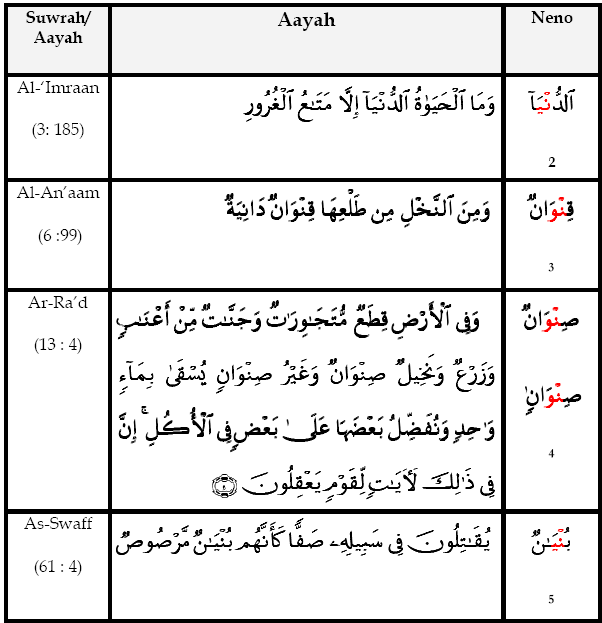 Suwrah/ Aayah Neno
Aayah
Al-‘Imraan
(3: 185)
وَمَا ٱلْحَيَوٰةُ ٱلدُّنْيَآ إِلَّا مَتَـٰعُ ٱلْغُرُورِ
ٱلدُّنْيَآ
2
Al-An’aam
(6 :99)
وَمِنَ ٱلنَّخْلِ مِن طَلْعِهَا قِنْوَانٌ دَانِيَةٌ
قِنْوَانٌ
3
Ar-Ra’d
(13 : 4)
وَفِى ٱلْأَرْضِ قِطَعٌ مُّتَجَـٰوِرَٰتٌ وَجَنَّـٰتٌ مِّنْ أَعْنَـٰبٍ
وَزَرْعٌ وَنَخِيلٌ صِنْوَانٌ وَغَيْرُ صِنْوَانٍ يُسْقَىٰ بِمَآءٍ
وَٰحِدٍ وَنُفَضِّلُ بَعْضَهَا عَلَىٰ بَعْضٍ فِى ٱلْأُكُلِ ۚ إِنَّ
فِى ذَٰلِكَ لَـَٔايَـٰتٍ لِّقَوْمٍ يَعْقِلُونَ ﴿٤﴾
صِنْوَانٌ
صِنْوَانٍ
4
As-Swaff
(61 : 4)
يُقَـٰتِلُونَ فِى سَبِيلِهِۦ صَفًّا كَأَنَّهُم بُنْيَـٰنٌ مَّرْصُوصٌ
بُنْيَـٰنٌ
5